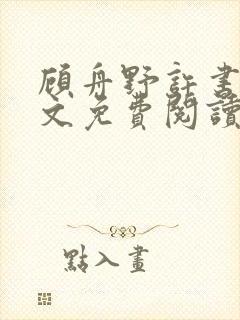 顧舟野許書
文免費閱讀
點入畫